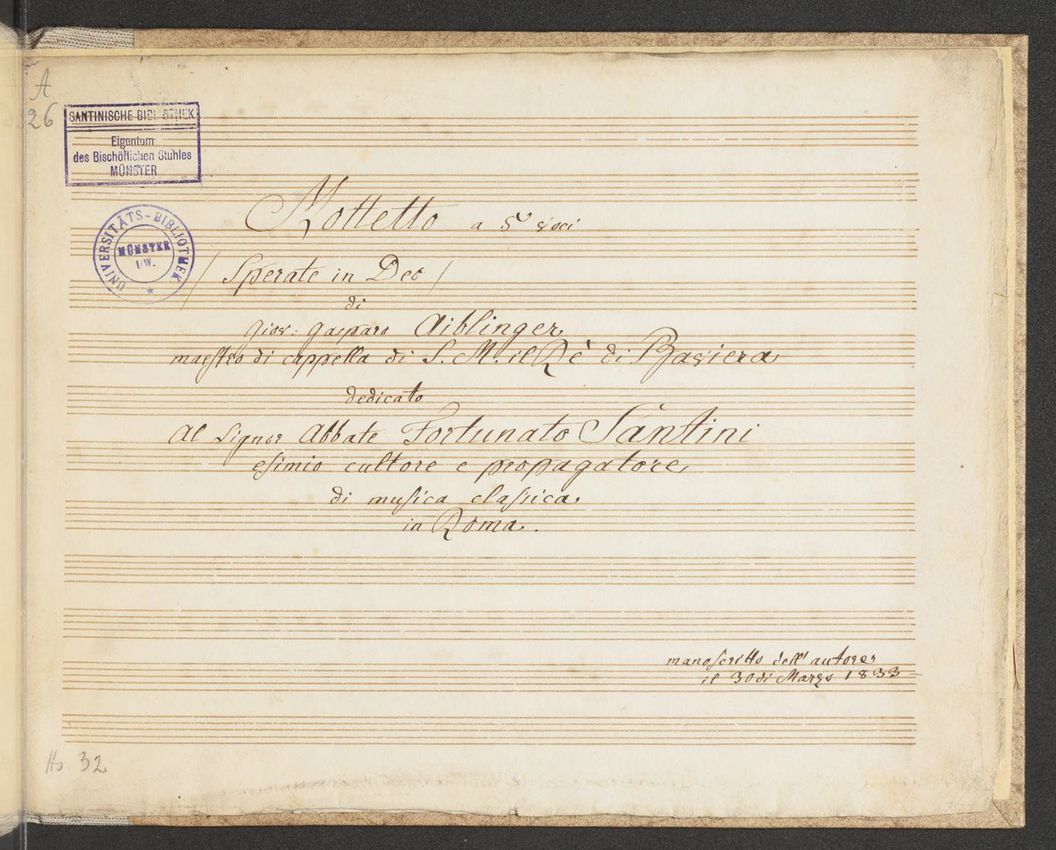 A
26
SANTINISCHE BIBLIOTHEK
Eigentum
des Bischöflichen Stuhles
MÜNSTER
UNIVERSITÄTS-BIBLIOTHEK
MÜNSTER
i/W.
Mottetto a 5 voci
/ Sperate in Deo /
di
Giov: Gasparo Aiblinger
maestro di cappella di S. M. il Rè di Baviera
dedicato
Al Signor Abbate Fortunato Santini
esimio cultore e propagatore
di musica classica
in Roma.
manoscritto dell' autore
il 30 di Marzo 1833
32